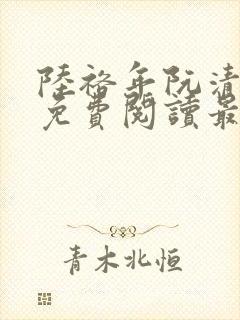 陸裕年阮清
免費閱讀最
青木北恒